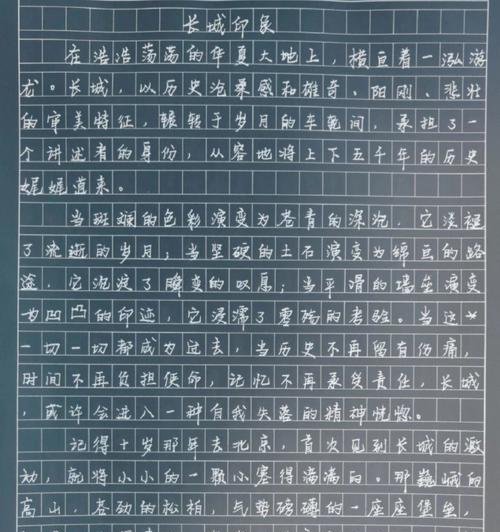 长城印象
在浩浩荡荡的华夏大地上，横亘着一泓游
龙。长城，以历史沧桑感和雄奇、阳刚、悲壮
的审美特征，辗转于岁月的车轮间，承担了一
个讲述者的身份，从容地将上下五千年的历史
娓娓道来。
当斑斓的色彩演变为苍青的深沉，它淡褪
了流逝的岁月；当坚硬的土石演变为绵亘的路
途，它沉淀了瞬变的叹息；当平滑的墙垒演变
为凹凸的印迹，它浸濡了零殇的考验。当这
一切一切都成为过去，当历史不再留有伤痛，
时间不再负担使命，记忆不再承受责任，长城，
或许会进入一种自我失落的精神恍惚。
记得十岁那年去北京，首次见到长城的激
动，就将小小的一颗心塞得满满的。那巍峨的
高山，苍劲的松柏，气势磅礴的一座座堡垒，